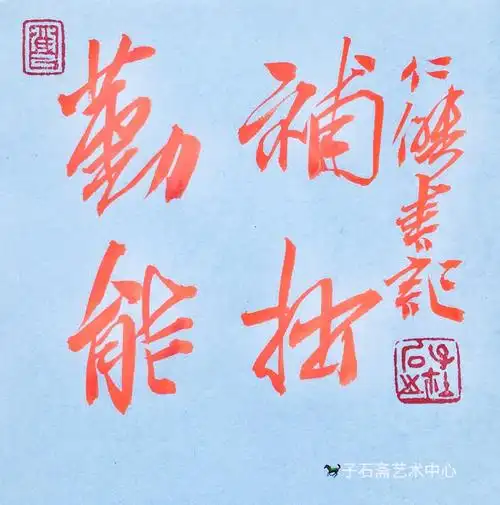 勤能
補拙
仁傑书記
子石斋艺术中心